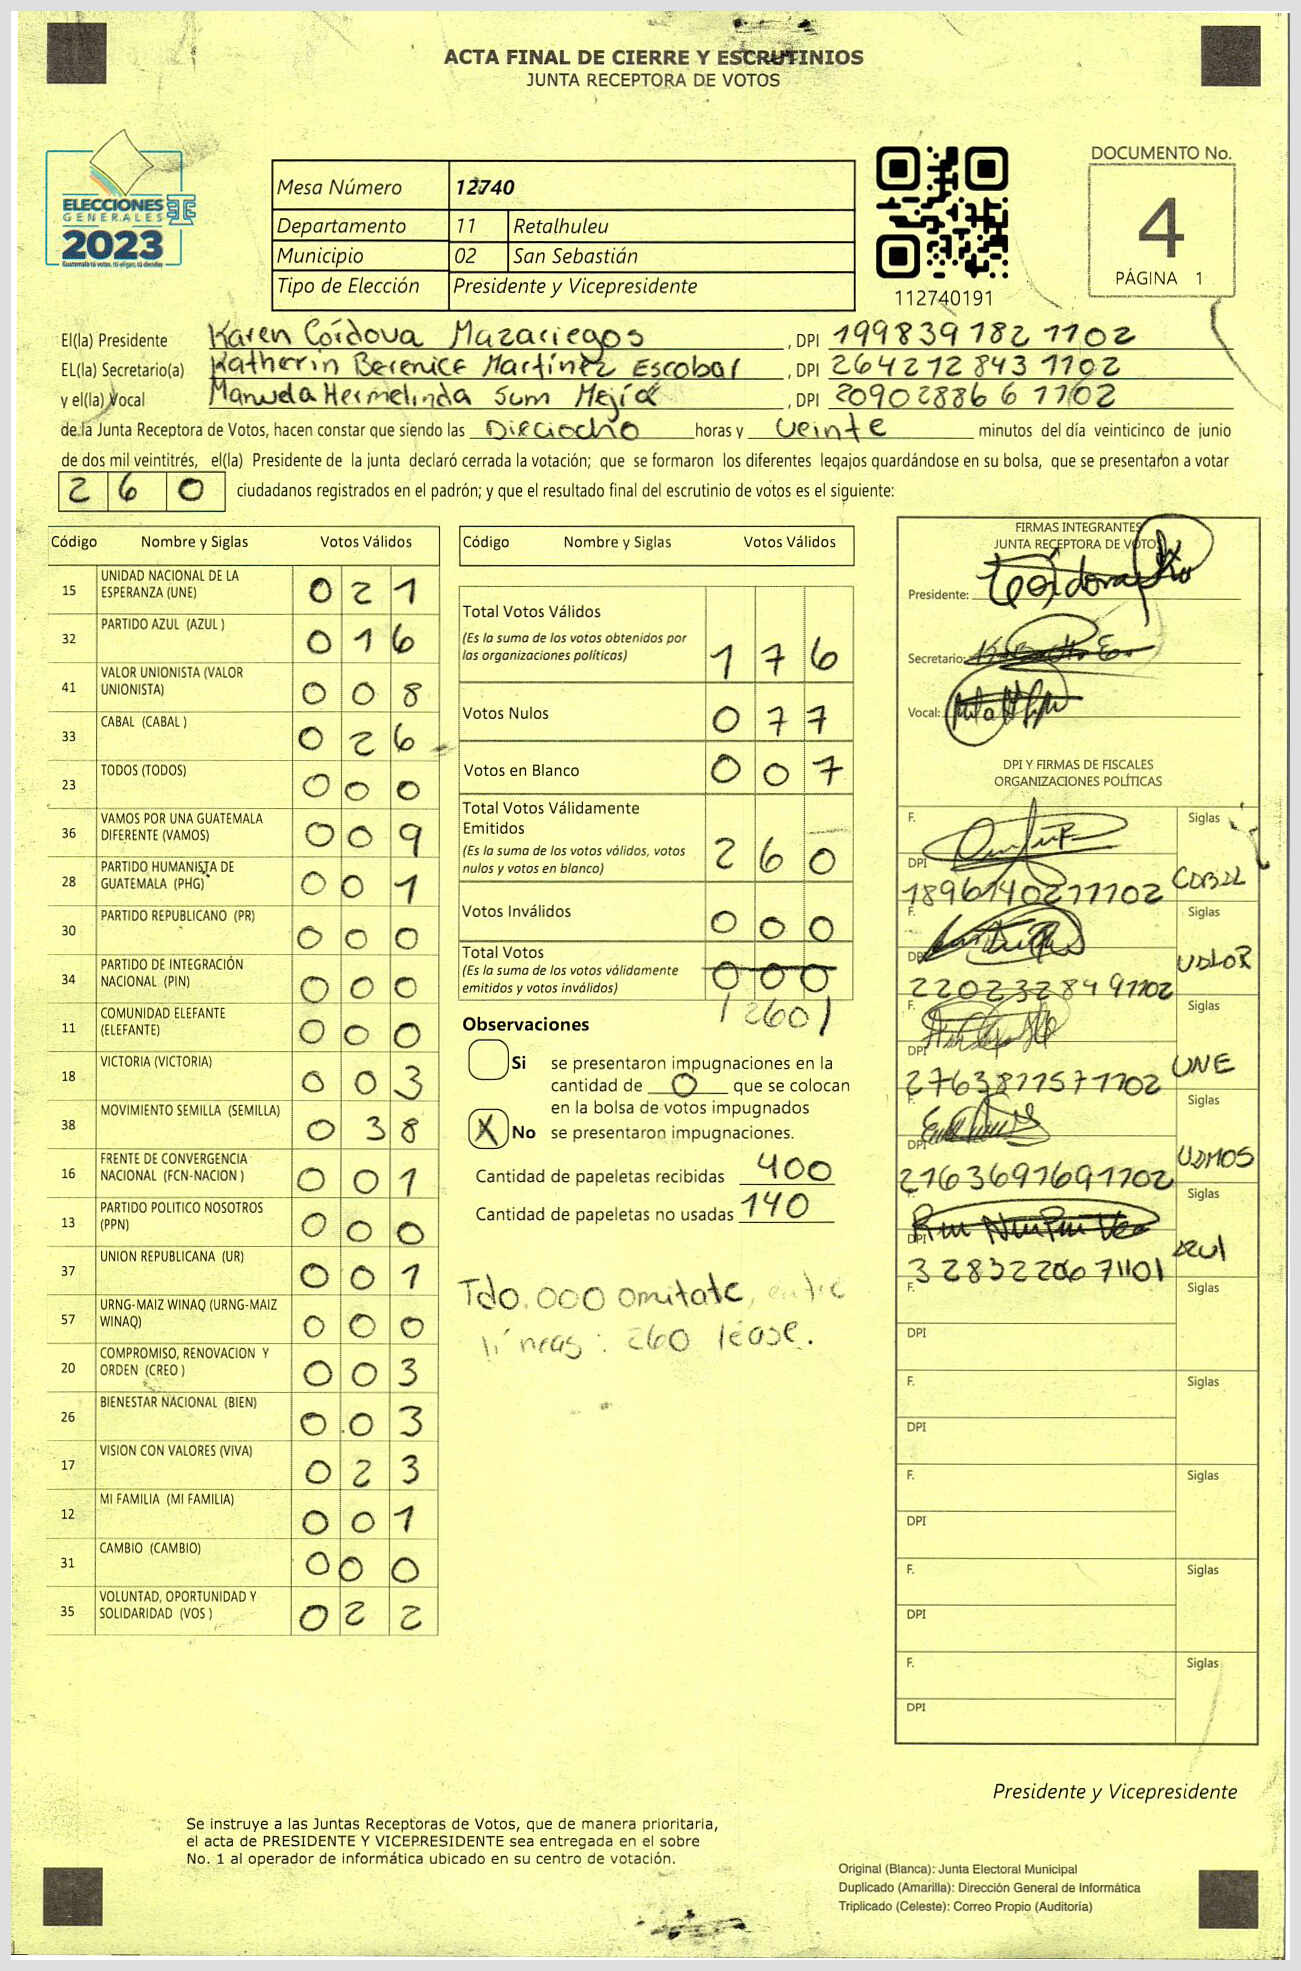 ACTA FINAL DE CIERRE Y ESCRUTINIOS
JUNTA RECEPTORA DE VOTOS
ELECCIONES
GENERALES
2023
Guatemala tú votas, tú eliges, tú decides
Mesa Número 12740
Departamento 11 Retalhuleu
Municipio 02 San Sebastián
Tipo de Elección Presidente y Vicepresidente
112740191
DOCUMENTO No.
4
PÁGINA 1
El(la) Presidente Karen Córdova Mazariegos, DPI 199839782 1102
EL(la) Secretario(a) Katherin Berenice Martínez Escobar, DPI 264272843 1102
y el(la) Vocal Manuela Hermelinda Sum Mejía, DPI 209028866 1102
de la Junta Receptora de Votos, hacen constar que siendo las Dieciocho horas y veinte minutos del día veinticinco de junio
de dos mil veintitrés, el(la) Presidente de la junta declaró cerrada la votación; que se formaron los diferentes legajos guardándose en su bolsa, que se presentaron a votar
260 ciudadanos registrados en el padrón; y que el resultado final del escrutinio de votos es el siguiente:
Código Nombre y Siglas Votos Válidos
15 UNIDAD NACIONAL DE LA ESPERANZA (UNE) 021
32 PARTIDO AZUL (AZUL ) 016
41 VALOR UNIONISTA (VALOR UNIONISTA) 008
33 CABAL (CABAL ) 026
23 TODOS (TODOS) 000
36 VAMOS POR UNA GUATEMALA DIFERENTE (VAMOS) 009
28 PARTIDO HUMANISTA DE GUATEMALA (PHG) 001
30 PARTIDO REPUBLICANO (PR) 000
34 PARTIDO DE INTEGRACIÓN NACIONAL (PIN) 000
11 COMUNIDAD ELEFANTE (ELEFANTE) 000
18 VICTORIA (VICTORIA) 003
38 MOVIMIENTO SEMILLA (SEMILLA) 038
16 FRENTE DE CONVERGENCIA NACIONAL (FCN-NACION ) 001
13 PARTIDO POLITICO NOSOTROS (PPN) 000
37 UNION REPUBLICANA (UR) 001
57 URNG-MAIZ WINAQ (URNG-MAIZ WINAQ) 000
20 COMPROMISO, RENOVACION Y ORDEN (CREO ) 003
26 BIENESTAR NACIONAL (BIEN) 003
17 VISION CON VALORES (VIVA) 023
12 MI FAMILIA (MI FAMILIA) 001
31 CAMBIO (CAMBIO) 000
35 VOLUNTAD, OPORTUNIDAD Y SOLIDARIDAD (VOS ) 022
Código Nombre y Siglas Votos Válidos
Total Votos Válidos
(Es la suma de los votos obtenidos por
las organizaciones políticas) 176
Votos Nulos 077
Votos en Blanco 007
Total Votos Válidamente
Emitidos
(Es la suma de los votos válidos, votos
nulos y votos en blanco) 260
Votos Inválidos 000
Total Votos
(Es la suma de los votos válidamente
emitidos y votos inválidos) 000
/260/
Observaciones
Si se presentaron impugnaciones en la
cantidad de 0 que se colocan
en la bolsa de votos impugnados
X No se presentaron impugnaciones.
Cantidad de papeletas recibidas 400
Cantidad de papeletas no usadas 140
Tdo. 000 omitate, entre
líneas: 260 léase.
FIRMAS INTEGRANTES
JUNTA RECEPTORA DE VOTOS
Presidente:
Secretario:
Vocal:
DPI Y FIRMAS DE FISCALES
ORGANIZACIONES POLÍTICAS
F. Siglas
DPI 1896140271102 CABAL
F. Siglas
DPI 2202328491102 VALOR
F. Siglas
DPI 2763877571102 UNE
F. Siglas
DPI 2763691691102 VAMOS
Siglas
DPI 3283220671101 AZUl
F. Siglas
DPI
F. Siglas
DPI
F. Siglas
DPI
F. Siglas
DPI
F. Siglas
DPI
Presidente y Vicepresidente
Se instruye a las Juntas Receptoras de Votos, que de manera prioritaria,
el acta de PRESIDENTE Y VICEPRESIDENTE sea entregada en el sobre
No. 1 al operador de informática ubicado en su centro de votación.
Original (Blanca): Junta Electoral Municipal
Duplicado (Amarilla): Dirección General de Informática
Triplicado (Celeste): Correo Propio (Auditoría)